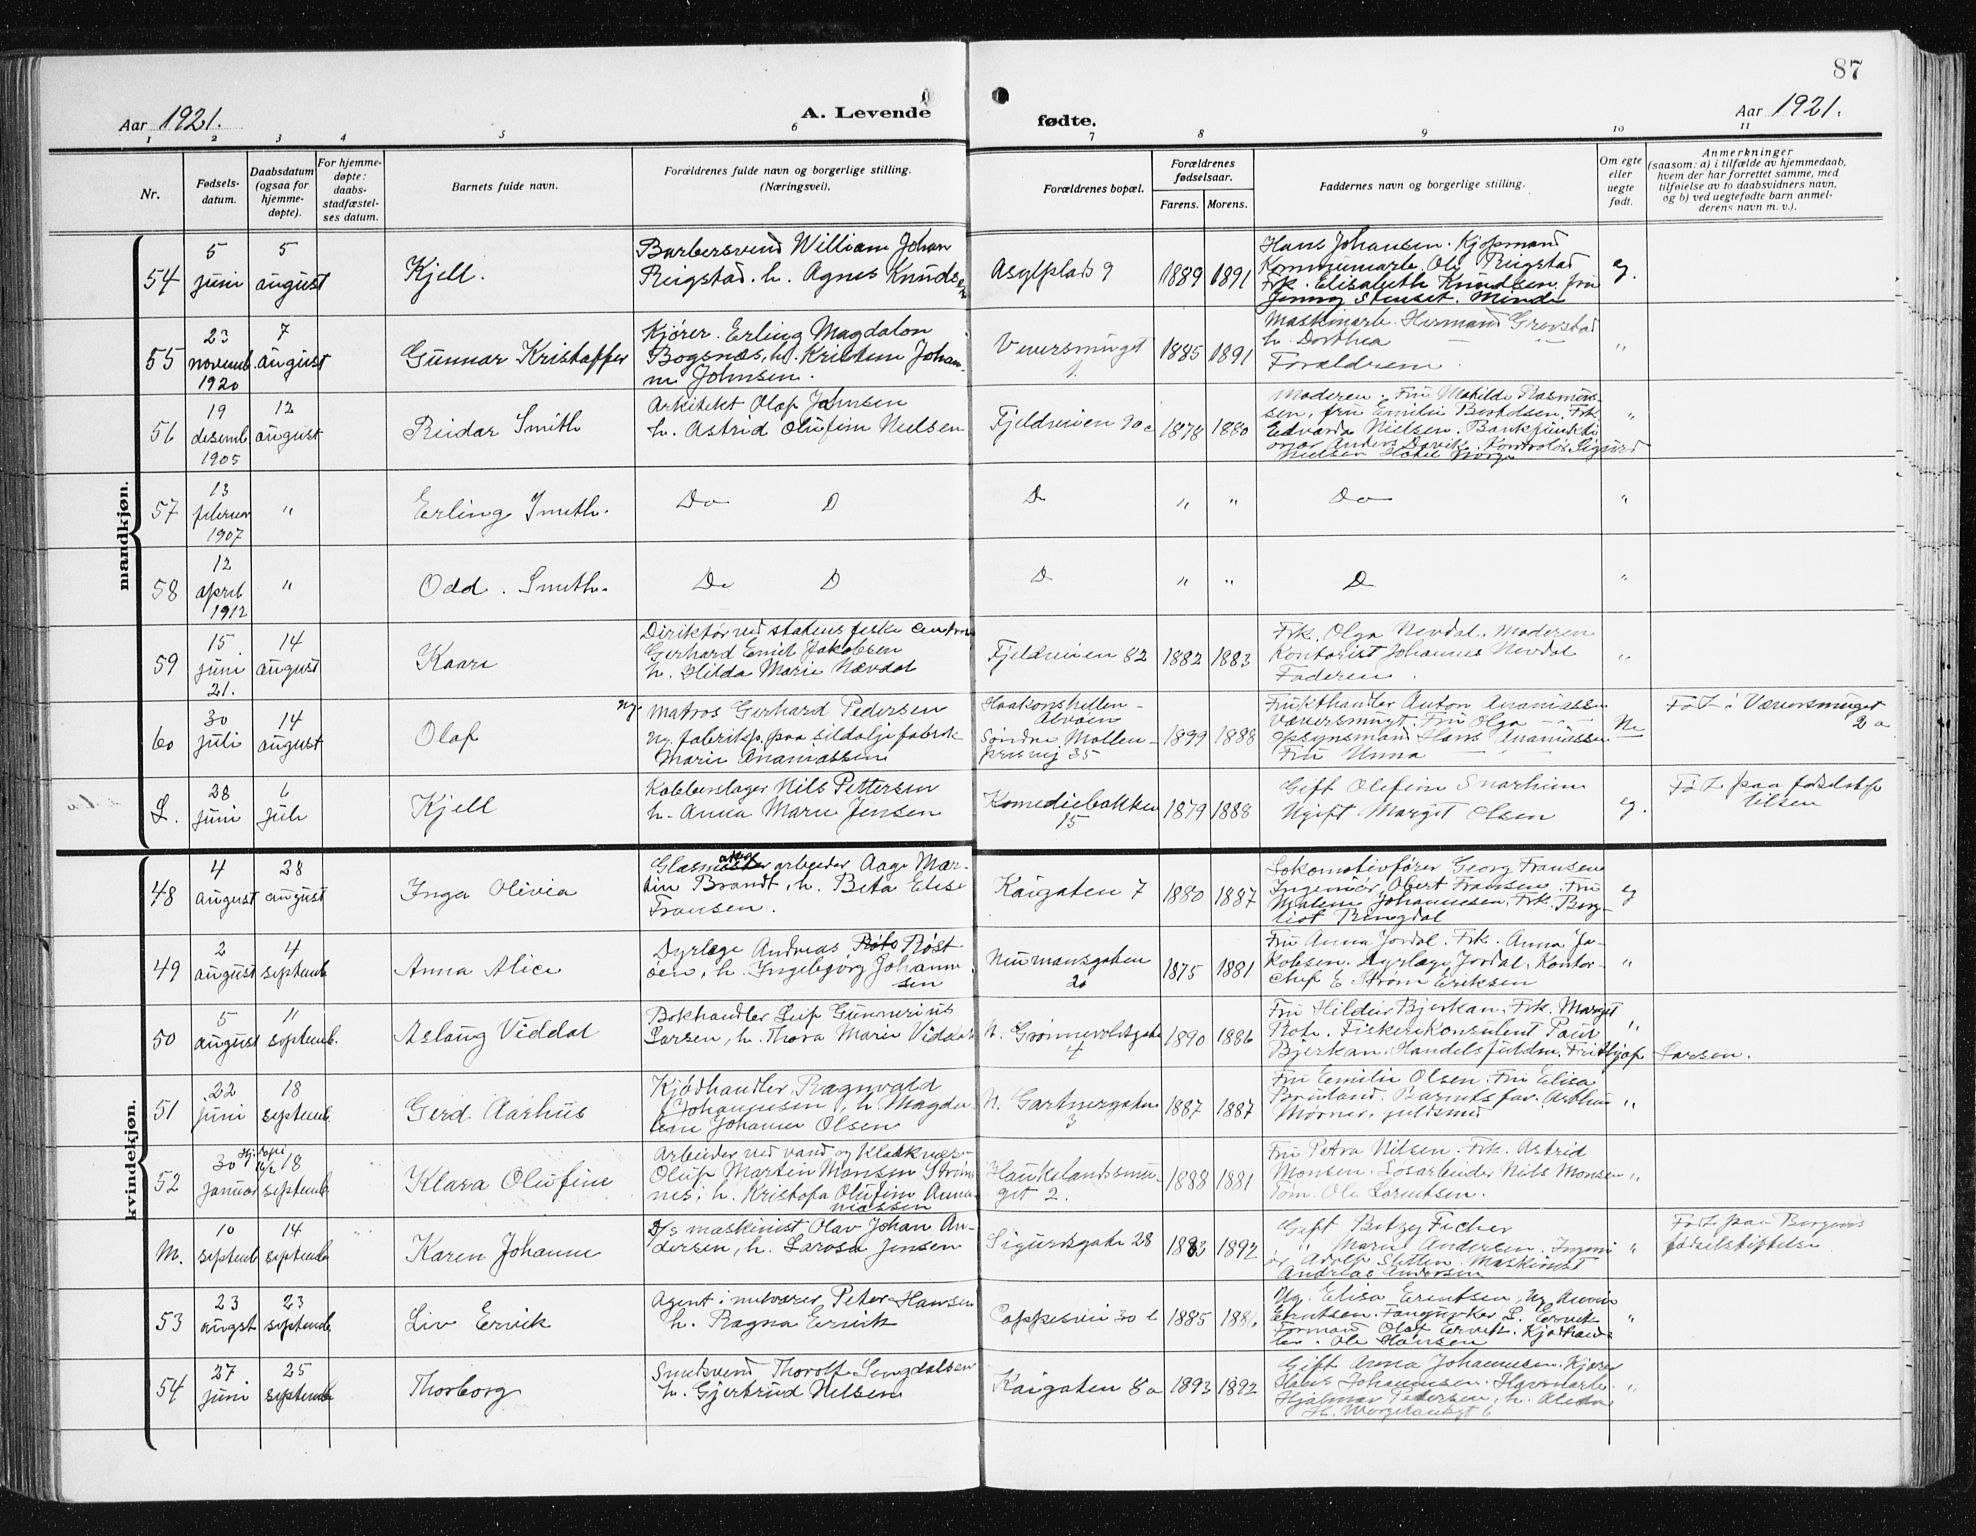 87
Aar 1921.
A. Levende
fødte.
Aar 1921.
1 2 3 4 5 6 7 8 9 10 11
Nr.
Fødsels-
datum.
Daabsdatum
(ogsaa for
hjemme-
døpte).
For hjemme-
døpte:
daabs-
stadfæstel-
ses datum.
Barnets fulde navn.
Forældrenes fulde navn og borgerlige stilling.
(Næringsvei).
Forældrenes bopæl.
Forældrenes
fødselsaar.
Farens. Morens.
Faddernes navn og borgerlige stilling.
Om egte
eller
uegte
født.
Anmerkninger
(saasom: a) i tilfælde av hjemmedaab,
hvem der har forrettet samme, med
tilføielse av to daabsvidners navn,
og b) ved uegtefødte barn anmel-
derens navn m. v.).
mandkjøn.
54
5
juni
5
august
Kjell.
Barbersvend William Johan
Reigstad. h. Agnes Knudsen
Asylplads 9
1889 1891
Hans Johansen. Kjøpmand
Kommunearb. Ole Reigstad
Frk. Elisabeth Knudsen. fru
Jenny Stenset. Minde
e.
55
23
novemb.
1920
7
august
Gunnar Kristoffer
Kjører. Erling Magdalon
Bogsnæs, h. Kristine Johan-
ne Johnsen.
Veversmuget
1
1885 1891
Maskinarb. Hermand Grevstad
h. Dorthea — „
Forældrene
„
56
19
desemb.
1905
12
august
Reidar Smith
Arkitekt Olaf Johnsen
h. Astrid Olufine Nielsen
Fjeldveien 90 c
1878 1880
Moderen. Fru Mathilde Rasmus-
sen, fru Emilie Bertelsen. Frk.
Edvarda Nielsen. Bankfunkti
onær Anders Darvik. Kontrolør Sigurd
Nielsen Hotel Norge
„
57
13
februar
1907
„
Erling Smith.
Do D
D
„ „
Do
„
58
12
april
1912
„
Odd. Smith.
Do D
D
„ „
D
„
59
15
juni
21.
14
august
Kaare
Direktør ved statens fiske central
Gerhard Emil Jakobsen
h. Hilda Marie Nævdal
Fjeldveien 82
1882 1883
Frk. Olga Nevdal. Moderen
Kontorist Johannes Nevdal
Faderen.
„
60
30
juli
14
august
Olaf
Ug. Matros Gerhard Pedersen
Ug. fabrikp. paa sildoljefabrik
Marie Ananiassen
Haakonshellen -
Alvøen
Søndre Møllen-
prisvej 35
1899 1888
Frukthandler Anton Ananiassen
Væversmugt. Fru Olga — „ —
Opsynsmand Hans Ananiassen
Fru Unna — „
Ue
Fø L i Væversmuget
2 a
L.
28
juni
6
juli
Kjell
Kobberslager Nils Pettersen
h. Anna Marie Jensen
Komediebakken
15
1879 1888
Gift Olefine Snarheim
Ugift Marget Olsen
e.
Fø L paa fødselstif
telsen
kvindekjøn.
48
4
august
28
august
Inga Olivia
arbeider Aage Mar-
tin Brandt, h. Beta Elise
Fransen.
Kaigaten 7
1880 1887
Lokomotivfører Georg Fransen
Ingeniør Obert Fransen. Fru
Malene Johannesen. Frk. Berg-
liot Ringdal
e
49
2
august
4
septemb
Anna Alice
Dyrlæge Andreas Røst
øen, h. Ingebjørg Johanne-
sen
Neumansgaten
20
1875 1881
Fru Anna Jordal. Frk. Anna Ja-
kobsen. Dyrlæge Jordal, Kontor-
chef E. Strøm Eriksen
„
50
5
august
11
septemb.
Aslaug Viddal
Bokhandler Leif Gunnerius
Larsen, h. Thora Marie Viddal
N. Grønnevoldsgate
4
1890 1886
Fru Hildur Bjerkan. Frk. Marget
Roti. Fiskerikonsulent Paul
Bjerkan. Handelsfuldm. Frithjof Larsen.
„
51
22
juni
18
septemb
Gerd Aarhus
Kjødhandler, Ragnvald
Johannesen, h. Magda
lene Johanne Olsen
N. Gartnergaten
3
1887 1887
Fru Emilie Olsen. Fru Elisa
Brunland. Barnets far. Arthur
Mørner, guldsmed
„
52
30
januar
18
septemb
Klara Olufine
Arbeider ved vand og kloakvæs-
Oluf Martin Monsen Strøm
nes, h. Kristofa Olufine Anna
niassen
Haukelandsmu-
get 2.
1888 1881
Fru Petra Nilsen. Frk. Astrid
Monsen. Løsarbeider Nils Monsen
Tøm. Ole Lorentsen.
„
M.
10
septemb
14
septemb
Karen Johanne
D/s maskinist Olav Johan An-
dersen, h. Larosa Jensen
Sigurdsgate 28
1883 1892
Gift Betzy Ficher
„ Marie Andersen. Ingeni
ør Adolf Sletten. Maskinist
Andreas Andersen
„
Fø L paa Bergens
fødselstiftelse
53
23
augst
23
septemb
Liv Ervik
Agent i metvarer Peter Hansen
h. Ragna Ervik
Cappesvei 30 c
1885 1886
Ug. Elisa Erentsen, Ug. Annie
Erentsen. L. Ervik
Formand Olaf Ervik. Kjøthand
ler. Ole Hansen
„
54
27
juni
25
septemb
Thorborg
Smedsvend Thorolf Sengdalsen
h. Gjertrud Nilsen
Kaigaten 8a
1893 1892
Gift Anna Johannesen. Kjører
Hans Johannesen. Havnearb.
Hjalmar Pedersen, h. Alida
„